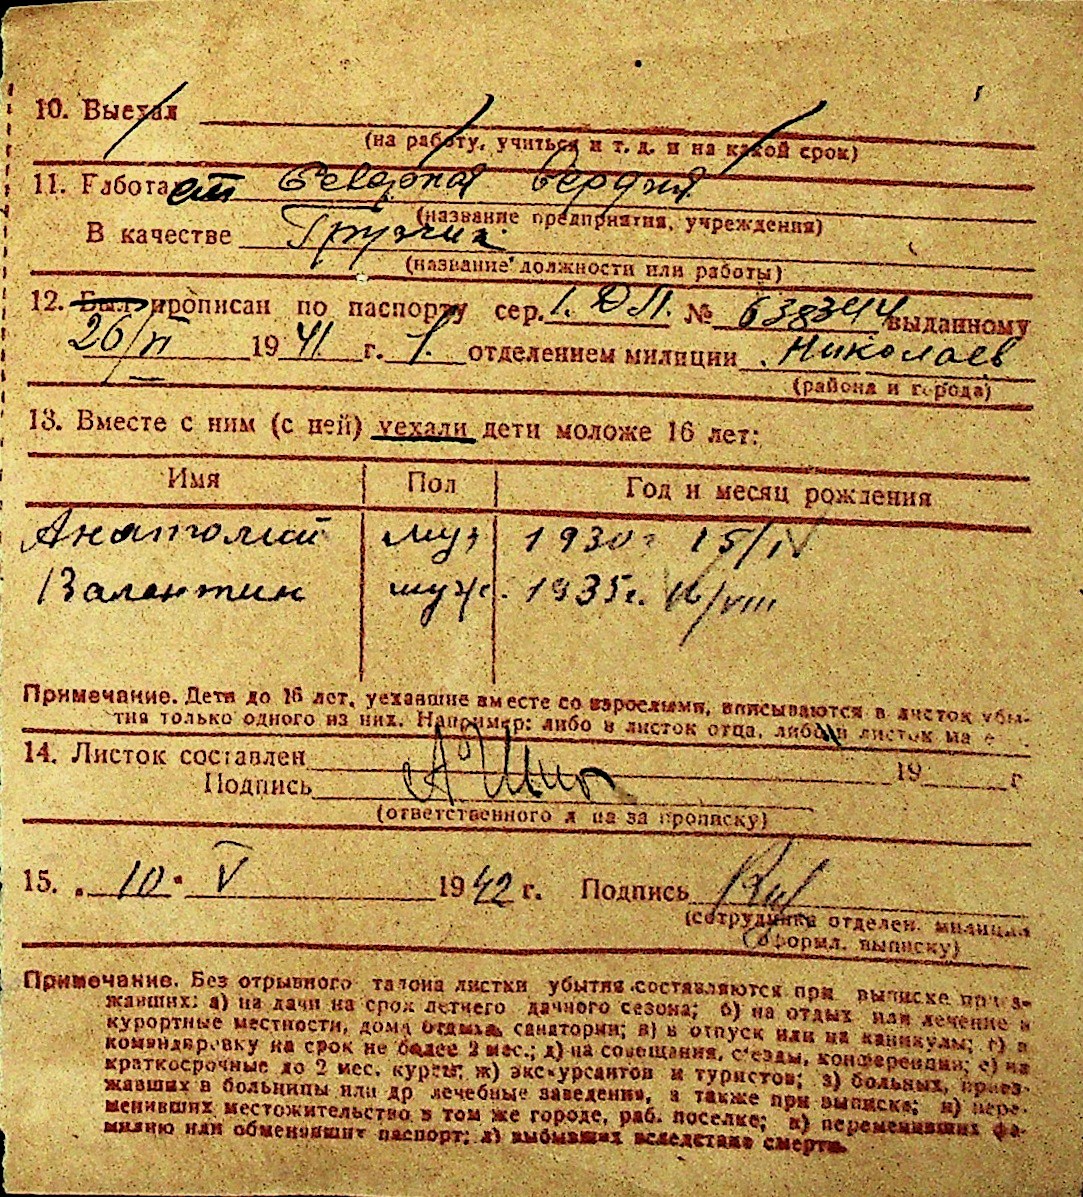 10. Выехал
(на работу, учиться и т. д. и на какой срок)
11. Работает
(название предприятия, учреждения)
В качестве Грузчик
(название должности или работы)
12. Был прописан по паспорту сер. I. ДП. № 638394 выданному
26/VI 1941 г. 1. отделением милиции Николаев
(района и города)
13. Вместе с ним (с ней) уехали дети моложе 16 лет:
Имя Пол Год и месяц рождения
Анатолий муж 1930 г 15/IV
Валентин муж. 1935 г. /VIII
Примечание. Дети до 16 лет, уехавшие вместе со взрослыми, вписываются в листок убы-
тия только одного из них. Например: либо в листок отца, либо в листок
14. Листок составлен 19 г
Подпись
(ответственного за прописку)
15. „10" V 1942 г. Подпись
(сотрудника отделен. милиции
оформл. выписку)
Примечание. Без отрывного талона листки убытия составляются при выписке приез-
жавших: а) на дачи на срок летнего дачного сезона; б) на отдых или лечение в
курортные местности, дома отдыха, санатории; в) в отпуск или на каникулы; г) в
командировку на срок не более 2 мес.; д) на совещания, съезды, конференции; е) на
краткосрочные до 2 мес. курсы; ж) экскурсантов и туристов; з) больных, приез-
жавших в больницы или др лечебные заведения, а также при выписке; и) пере-
менивших местожительство в том же городе, раб. поселке; к) переменивших фа-
милию или обменявших паспорт; л) выбывших вследствие смерти.